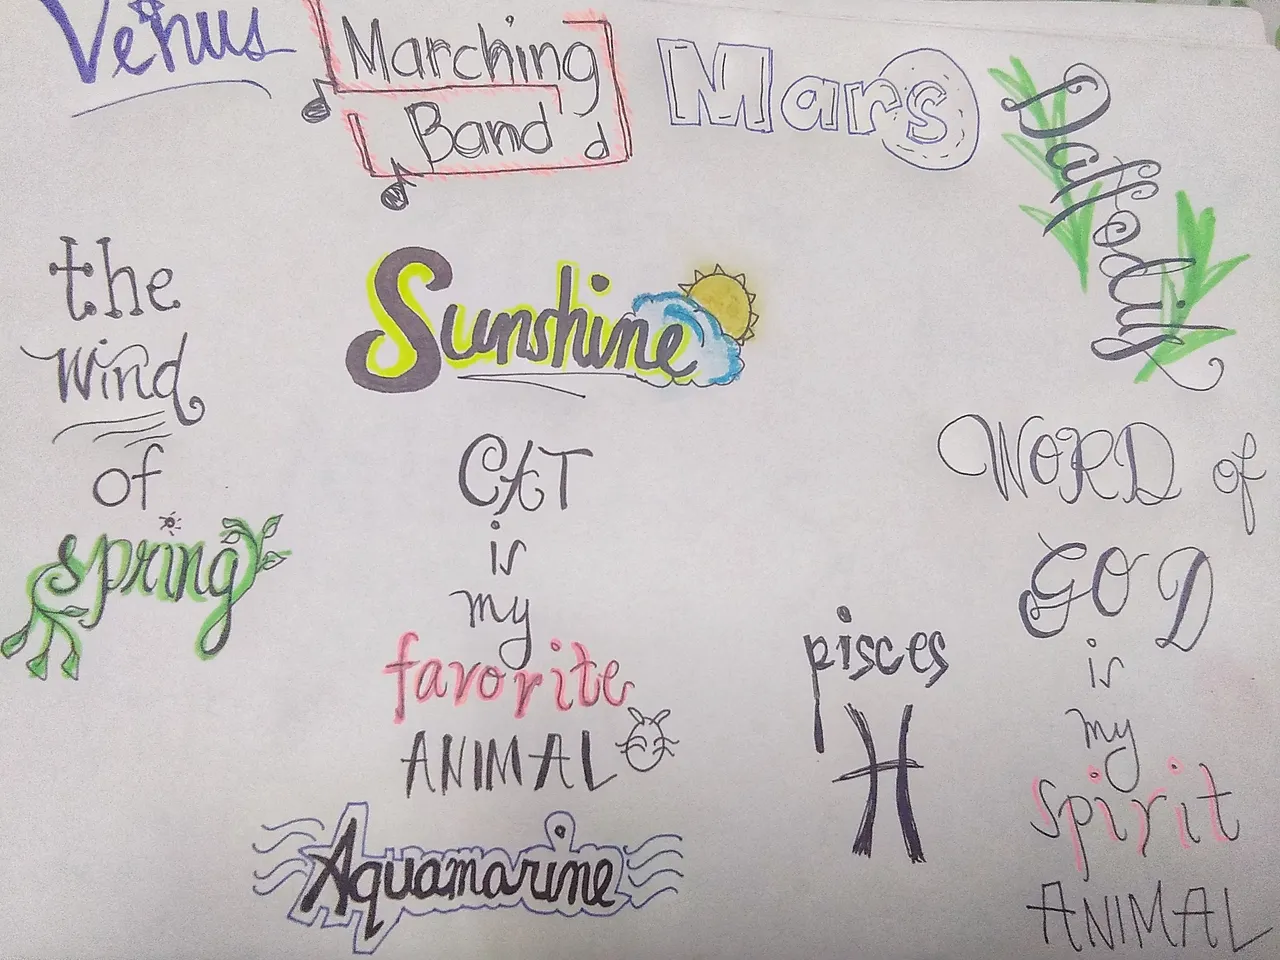 Venus
Marching
Band
Mars
Daffodil
the
wind
of
spring
Sunshine
CAT
is
my
favorite
ANIMAL
Aquamarine
pisces
WORD of
GOD
is
my
spirit
ANIMAL